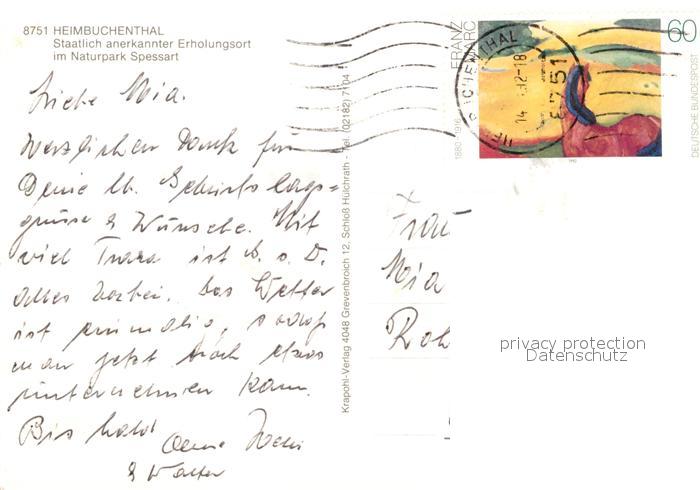 8751 HEIMBUCHENTHAL
Staatlich anerkannter Erholungsort
im Naturpark Spessart
Liebe Mia.
Herzlichen Dank für
Deine lb. Geburtstags=
grüsse & Wünsche. Mit
viel Trara ist
alles vorbei. Das Wetter
ist sodaß
man jetzt noch etwas
unternehmen kann.
Bis bald
Deine
& Walter
Krapohl-Verlag 4048 Grevenbroich 12, Schloß Hülchrath - Tel. (02182) 7104
FRANZ MARC
1880-1916
60
DEUTSCHE BUNDESPOST
8751
Frau
Mia
Roh
privacy protection
Datenschutz